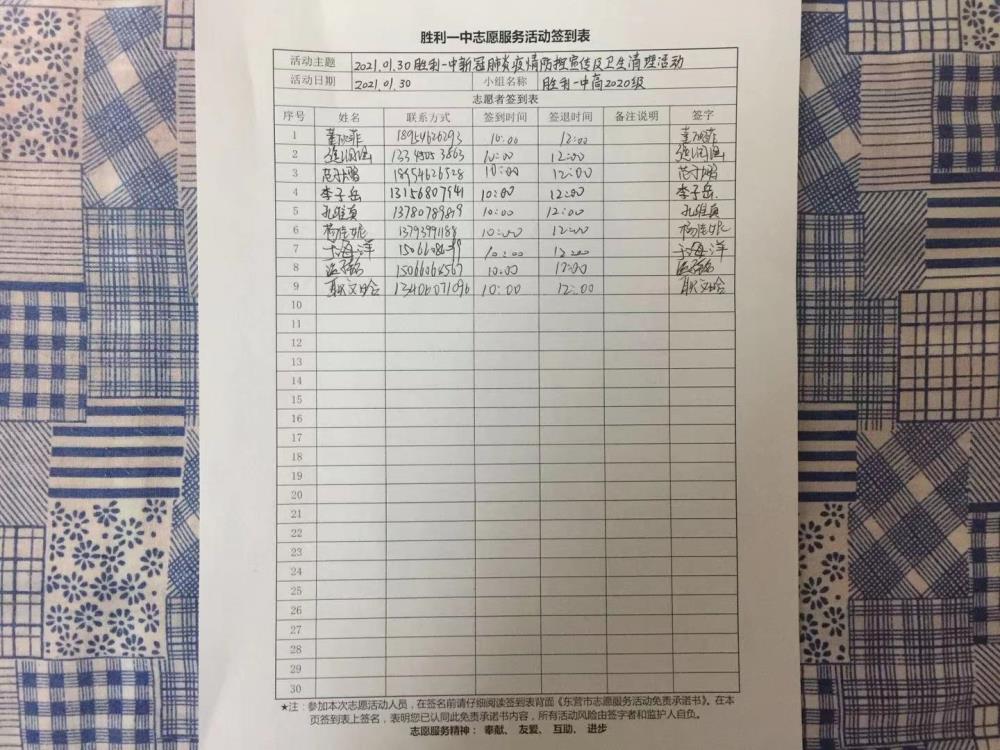 胜利一中志愿服务活动签到表
活动主题 2021.01.30胜利一中新冠肺炎疫情防控宣传及卫生清理活动
活动日期 2021.01.30 小组名称 胜利一中高2020级
志愿者签到表
序号 姓名 联系方式 签到时间 签退时间 备注说明 签字
1 18954626293 10:00 12:00
2 10:00 12:00
3 18954626528 10:00 12:00
4 李子岳 13156807941 10:00 12:00 李子岳
5 孔维真 13780789819 10:00 12:00 孔维真
6 杨佳妮 13793991188 10:00 12:00 杨佳妮
7 10:00 12:00
8 15066064567 10:00 12:00
9 耿文晗 13406071096 10:00 12:00 耿文晗
10
11
12
13
14
15
16
17
18
19
20
21
22
23
24
25
26
27
28
29
30
★注：参加本次志愿活动人员，在签名前请仔细阅读签到表背面《东营市志愿服务活动免责承诺书》，在本
页签到表上签名，表明您已认同此免责承诺书内容，所有活动风险由签字者和监护人自负。
志愿服务精神： 奉献、 友爱、 互助、 进步